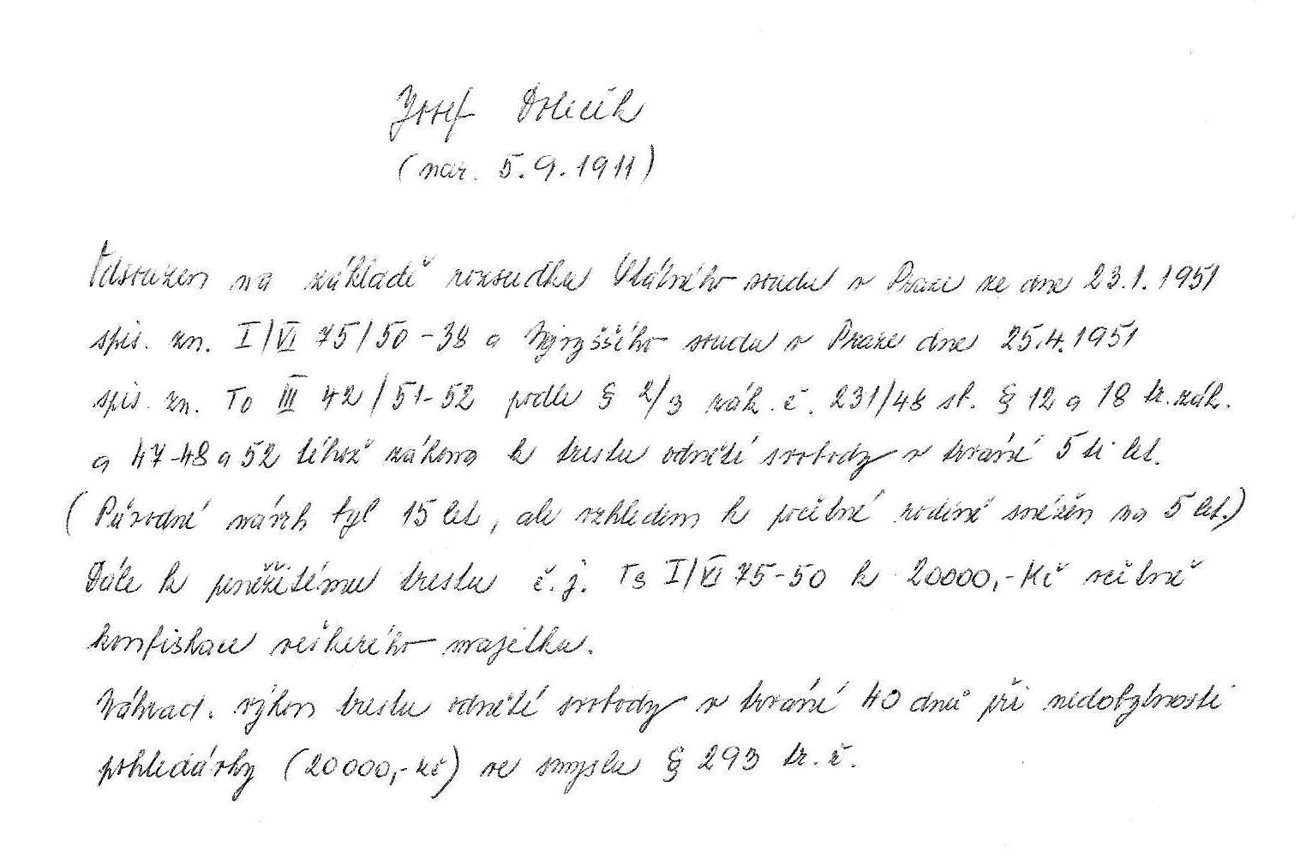 Josef Dolečík
(nar. 5.9.1911)
Odsouzen na základě rozsudku Státního soudu v Praze ze dne 23.1.1951
spis. zn. I/VI 75/50-38 a Nejvyššího soudu v Praze dne 25.4.1951
spis. zn. To III 42/51-52 podle § 2/3 zák. č. 231/48 sb. § 12 a 18 tr. zák.
a 47-48 a 52 téhož zákona k trestu odnětí svobody v trvání 5 ti let.
(Původní návrh byl 15 let, ale vzhledem k početné rodině snížen na 5 let.)
Dále k peněžitému trestu č.j. Ts I/VI 75-50 k 20000,-Kč včetně
konfiskace veškerého majetku.
Náhrad. výkon trestu odnětí svobody v trvání 40 dnů při nedobytnosti
pohledávky (20000,-Kč) ve smyslu § 293 tr. ř.